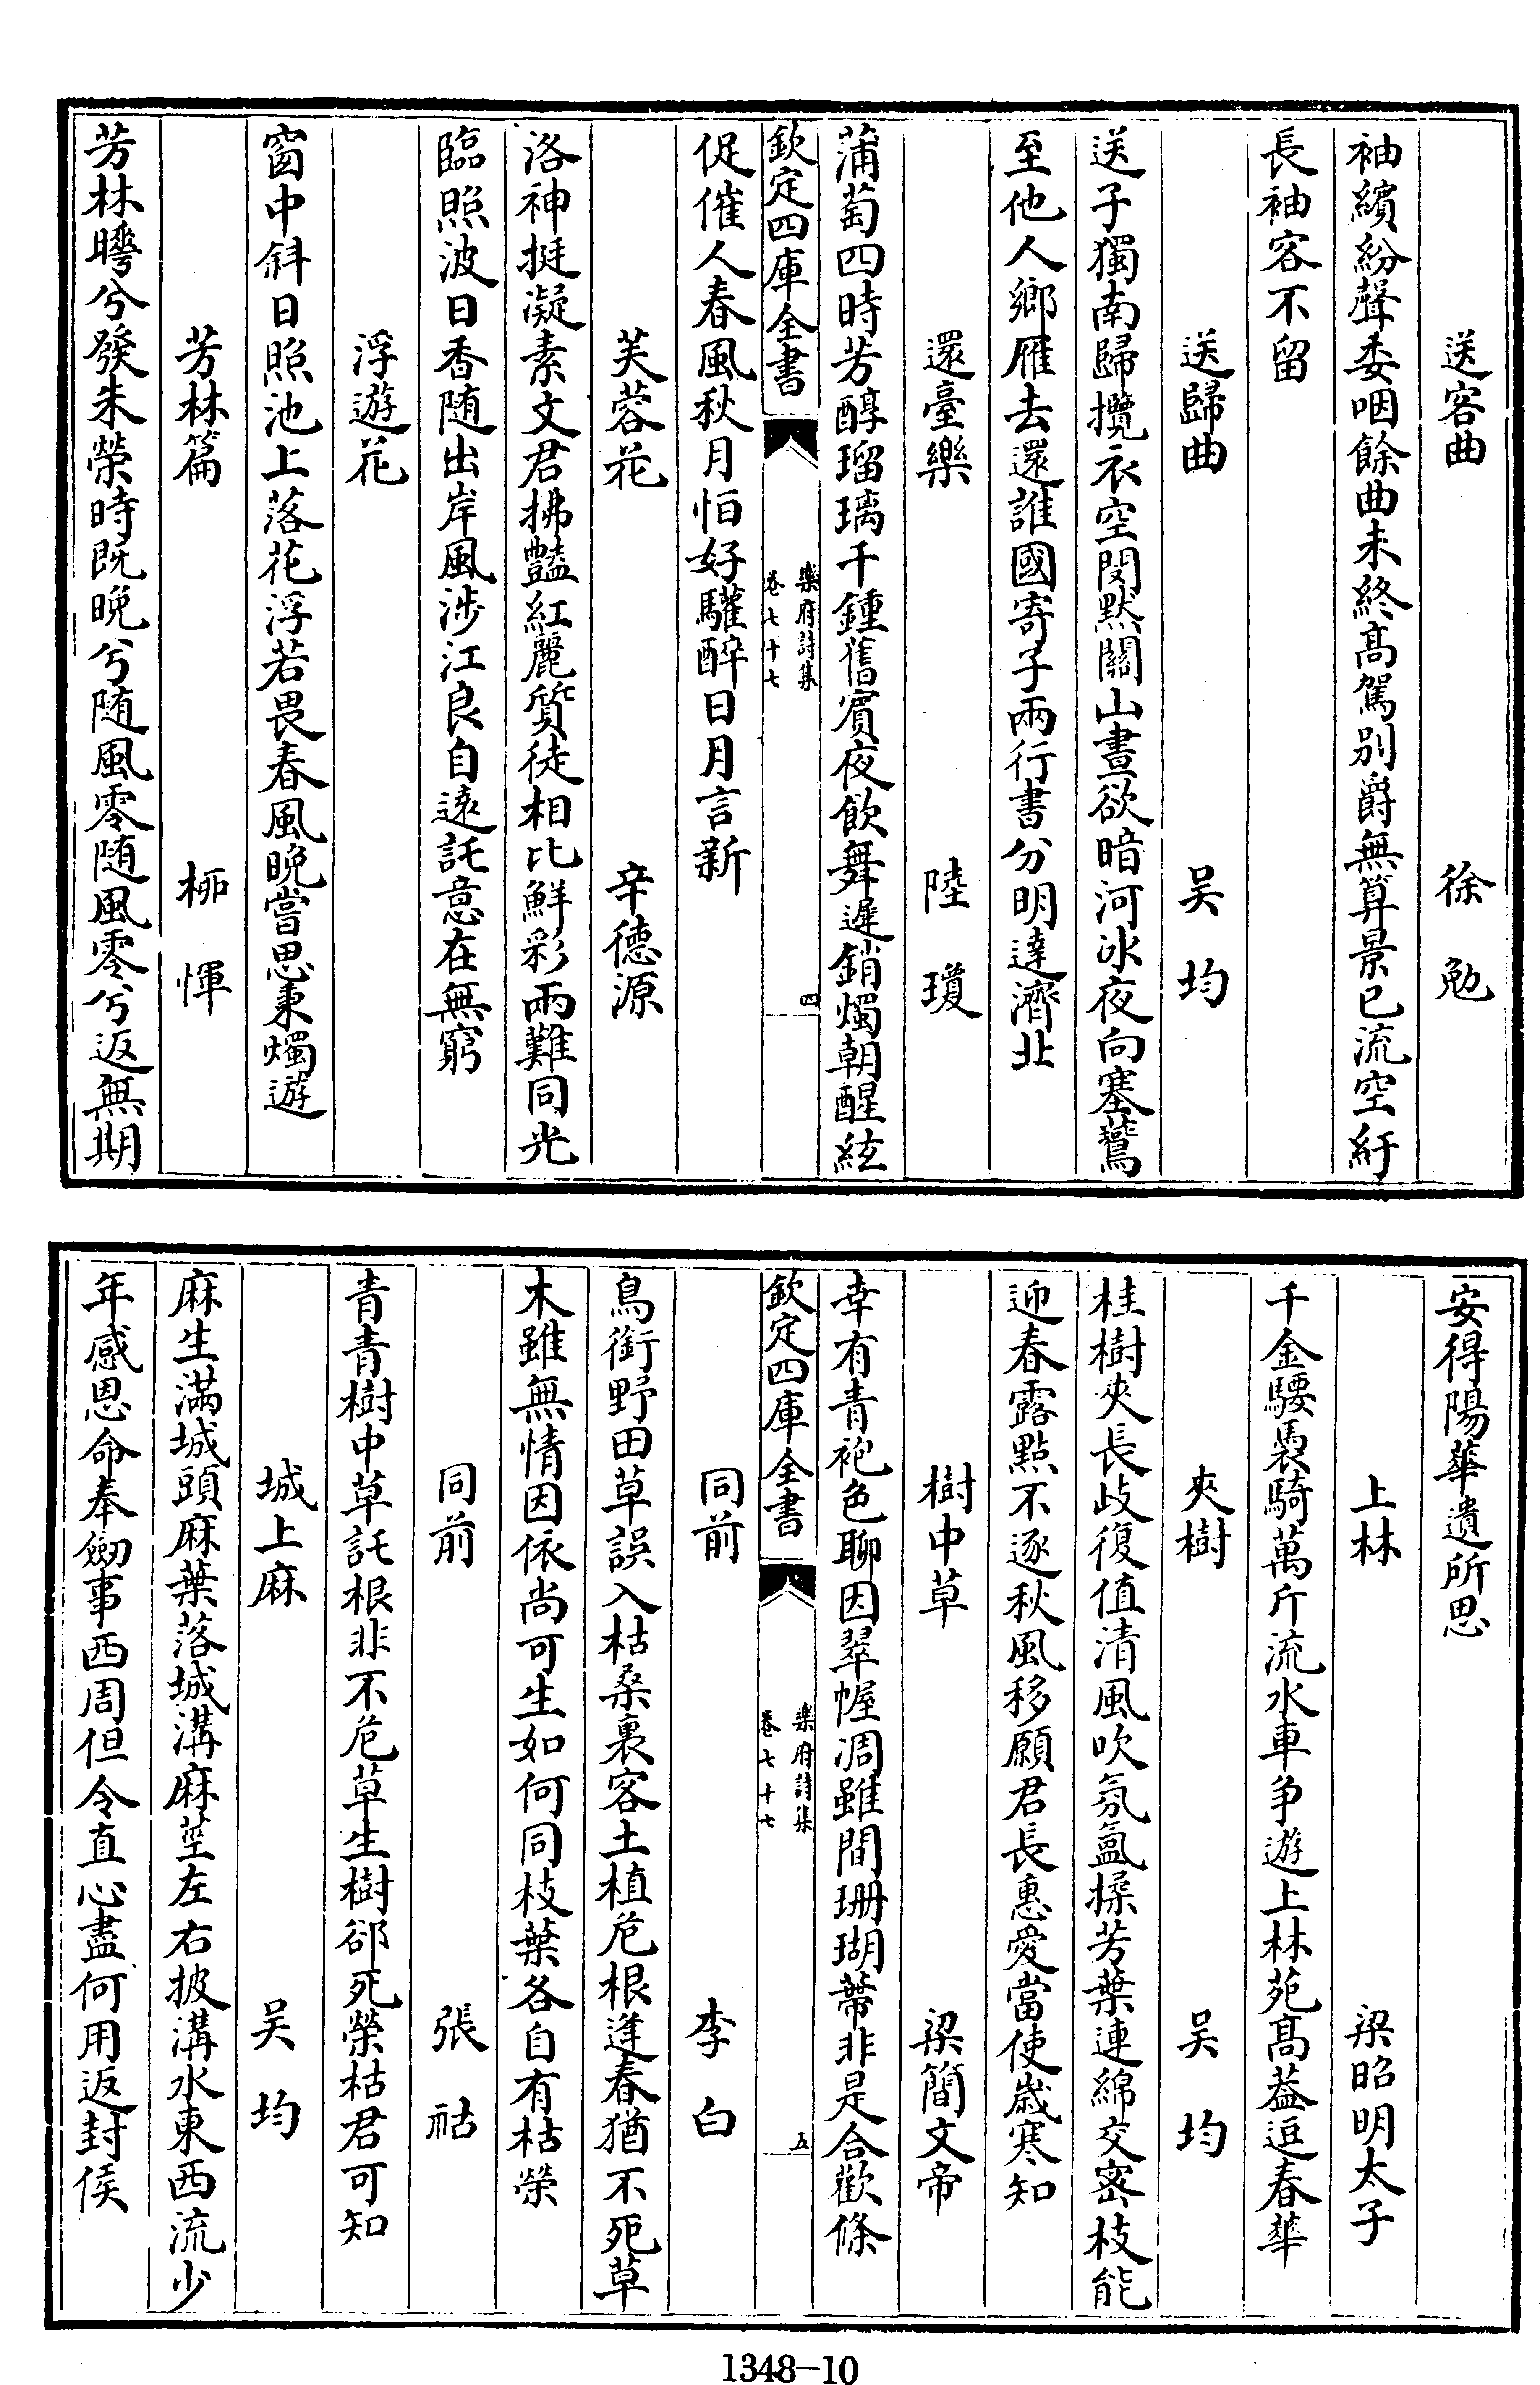 送客曲　徐勉
袖繽紛聲委咽餘曲未終髙駕别爵無算景已流空紆
長袖客不留
送歸曲　吴均
送子獨南歸攬衣空閔黙闗山晝欲暗河冰夜向塞鷰
至他人鄉雁去還誰國寄子兩行書分明達濟北
還臺樂　陸瓊
蒲萄四時芳醇瑠璃千鍾舊賔夜飲舞遲銷燭朝醒絃
欽定四庫全書
樂府詩集
卷七十七
四
促催人春風秋月恒好驩醉日月言新
芙蓉花　辛德源
洛神挺凝素文君拂豔紅麗質徒相比鮮彩兩難同光
臨照波日香随出岸風涉江良自逺託意在無窮
浮遊花
窗中斜日照池上落花浮若畏春風晚嘗思秉燭遊
芳林篇　栁惲
芳林曄兮發朱榮時既晚兮随風零随風零兮返無期
安得陽華遺所思
上林　梁昭明太子
千金騕褭騎萬斤流水車争遊上林苑髙葢逗春華
夾樹　吴均
桂樹夾長岐復值清風吹氛氳揉芳葉連綿交密枝能
迎春露點不逐秋風移願君長惠愛當使歳寒知
樹中草　梁簡文帝
幸有青袍色聊因翠幄凋雖間珊瑚蔕非是合歡條
欽定四庫全書
樂府詩集
卷七十七
五
同前　李白
鳥銜野田草誤入枯桑裏客土植危根逢春猶不死草
木雖無情因依尚可生如何同枝葉各自有枯榮
同前　張祜
青青樹中草託根非不危草生樹郤死榮枯君可知
城上麻　吴均
麻生滿城頭麻葉落城溝麻莖左右披溝水東西流少
年感恩命奉劒事西周但令直心盡何用返封侯
1348-10